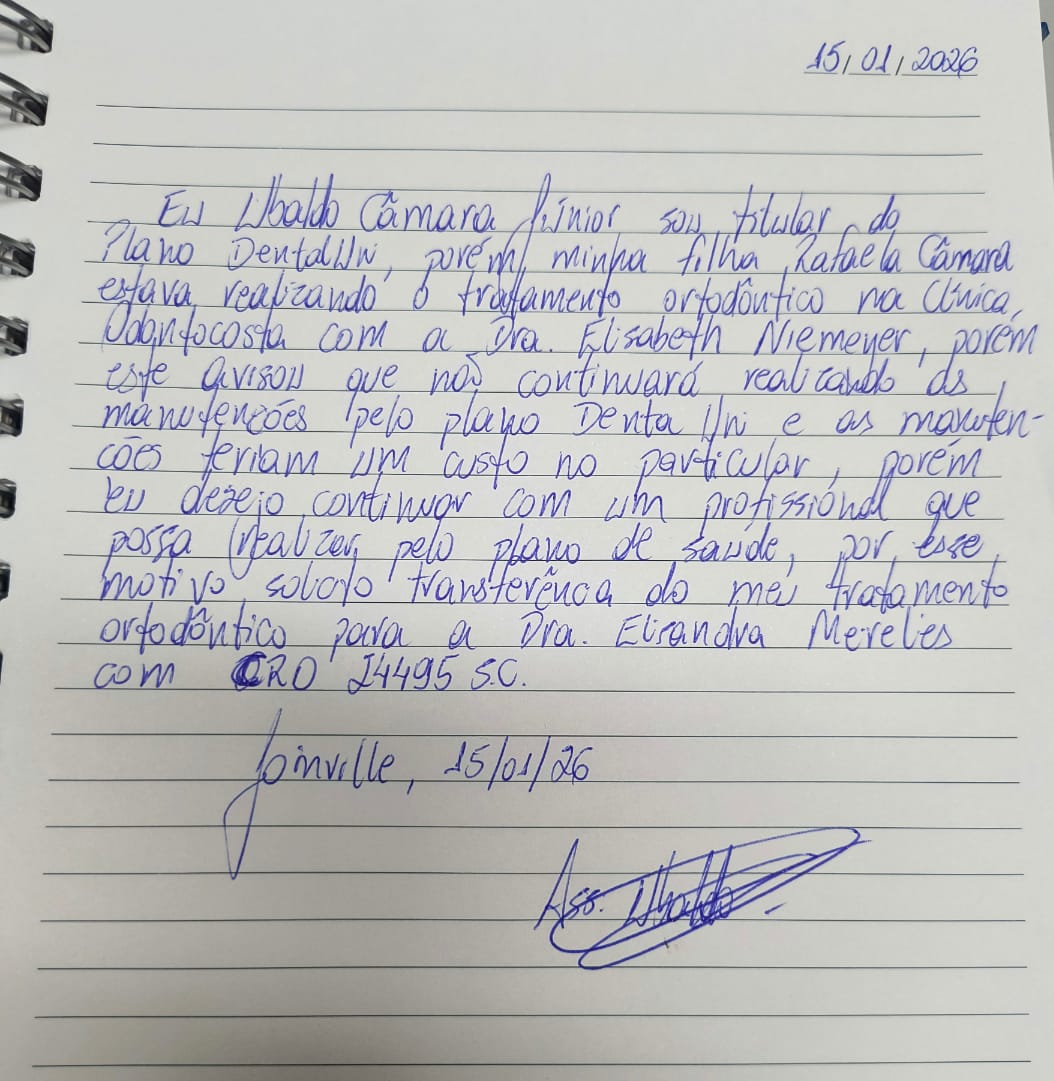 15/01/2026
Eu Ubaldo Câmara Júnior, sou titular do
Plano DentalUni, porém minha filha Rafaela Câmara
estava realizando o tratamento ortodôntico na Clínica
Odontocosta com a Dra. Elisabeth Niemeyer, porém
este avisou que não continuará realizando as
manutenções pelo plano Denta Uni e as manuten-
ções teriam um custo no particular, porém
eu desejo continuar com um profissional que
possa realizar pelo plano de saúde, por esse
motivo solicito transferência do meu tratamento
ortodôntico para a Dra. Elisandra Merelies
com CRO 14495 S.C.
Joinville, 15/01/26
Ass. Ubaldo